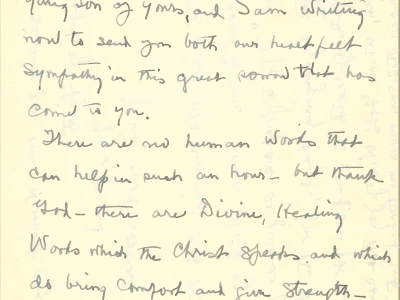 young son of yours, and I am writing
now to send you both our heartfelt
sympathy in this great sorrow that has
come to you.
There are no human words that
can help in such an hour - but thank
God - there are Divine, Healing
Words which the Christ speaks and which
do bring comfort and give strength -